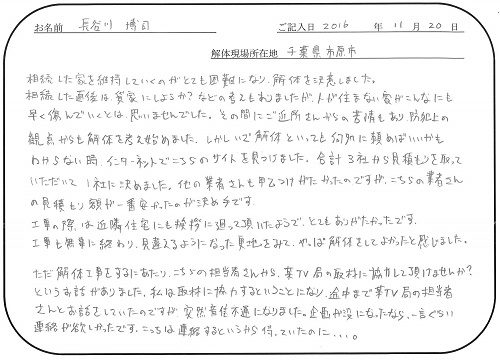 お名前 長谷川 博司 ご記入日 2016 年 11 月 20 日
解体現場所在地 千葉県市原市
相続した家を維持していくのがとても困難になり、解体を決意しました。
相続した直後は、貸家にしようか?などの考えもありましたが、人が住まない家がこんなにも
早く傷んでいくとは、思いませんでした。その間にご近所さんからの苦情もあり、防犯上の
観点からも解体を考え始めました。しかしいざ解体といっても何処に頼めばいいかも
わからない時、インターネットでこちらのサイトを見つけました。合計3社から見積もりを取って
いただいて1社に決めました。他の業者さんも甲乙つけがたかったのですが、こちらの業者さん
の見積もり額が一番安かったのが決め手です。
工事の際は近隣住宅にも挨拶に廻って頂いたようで、とてもありがたかったです。
工事も無事に終わり、見違えるようになった更地をみて、やっぱ解体をしてよかったと感じました。
ただ解体工事をするにあたり、こちらの担当者さんから、某TV局の取材に協力して頂けませんか?
というお話がありました。私は取材に協力するということになり、途中まで某TV局の担当者
さんとお話をしていたのですが、突然音信不通になりました。企画が没になったなら、一言ぐらい
連絡が欲しかったです。こっちは連絡するというから待っていたのに・・・。